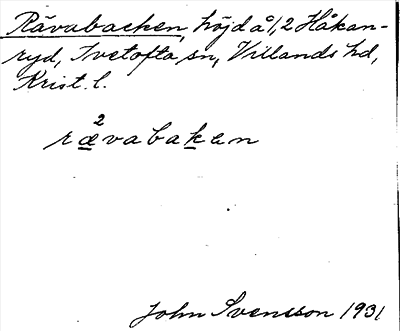 Rävabacken, höjd å 1,2 Håkan-
ryd, Ivetofta sn, Villands hd,
Krist. l.
2
rævabaken
John Svensson 1931